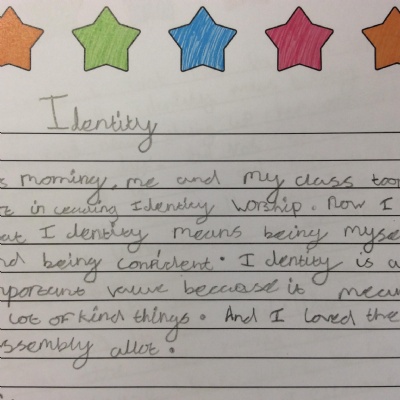 Identity
s morning, me and my class too
t in leading Identity Worship. Now I
at Identity means being myse
nd being confident. Identity is a
mportant value because it mean
lot of kind things. And I loved the
ssembly allot.